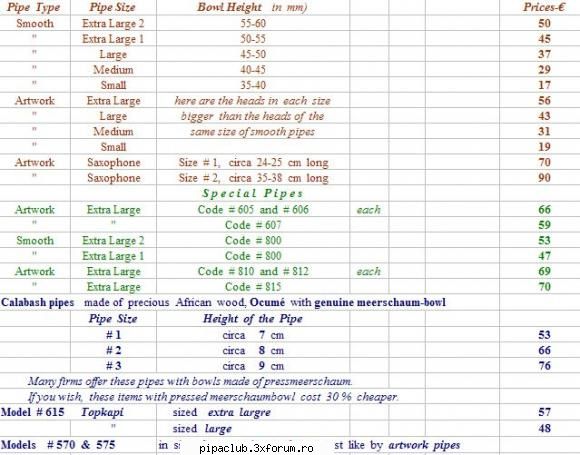 Pipe Type Pipe Size Bowl Height (in mm) Prices-€
Smooth Extra Large 2 55-60 50
" Extra Large 1 50-55 45
" Large 45-50 37
" Medium 40-45 29
" Small 35-40 17
Artwork Extra Large here are the heads in each size 56
" Large bigger than the heads of the 43
" Medium same size of smooth pipes 31
" Small 19
Artwork Saxophone Size # 1, circa 24-25 cm long 70
" Saxophone Size # 2, circa 35-38 cm long 90
Special Pipes
Artwork Extra Large Code # 605 and # 606 each 66
" " Code # 607 59
Smooth Extra Large 2 Code # 800 53
" Extra Large 1 Code # 800 47
Artwork Extra Large Code # 810 and # 812 each 69
" Extra Large Code # 815 70
Calabash pipes made of precious African wood, Ocumé with genuine meerschaum-bowl
Pipe Size Height of the Pipe
# 1 circa 7 cm 53
# 2 circa 8 cm 66
# 3 circa 9 cm 76
Many firms offer these pipes with bowls made of pressmeerschaum.
If you wish, these items with pressed meerschaumbowl cost 30 % cheaper.
Model # 615 Topkapi sized extra largre 57
" sized large 48
Models # 570 & 575 in st like by artwork pipes
pipaclub.3xforum.ro